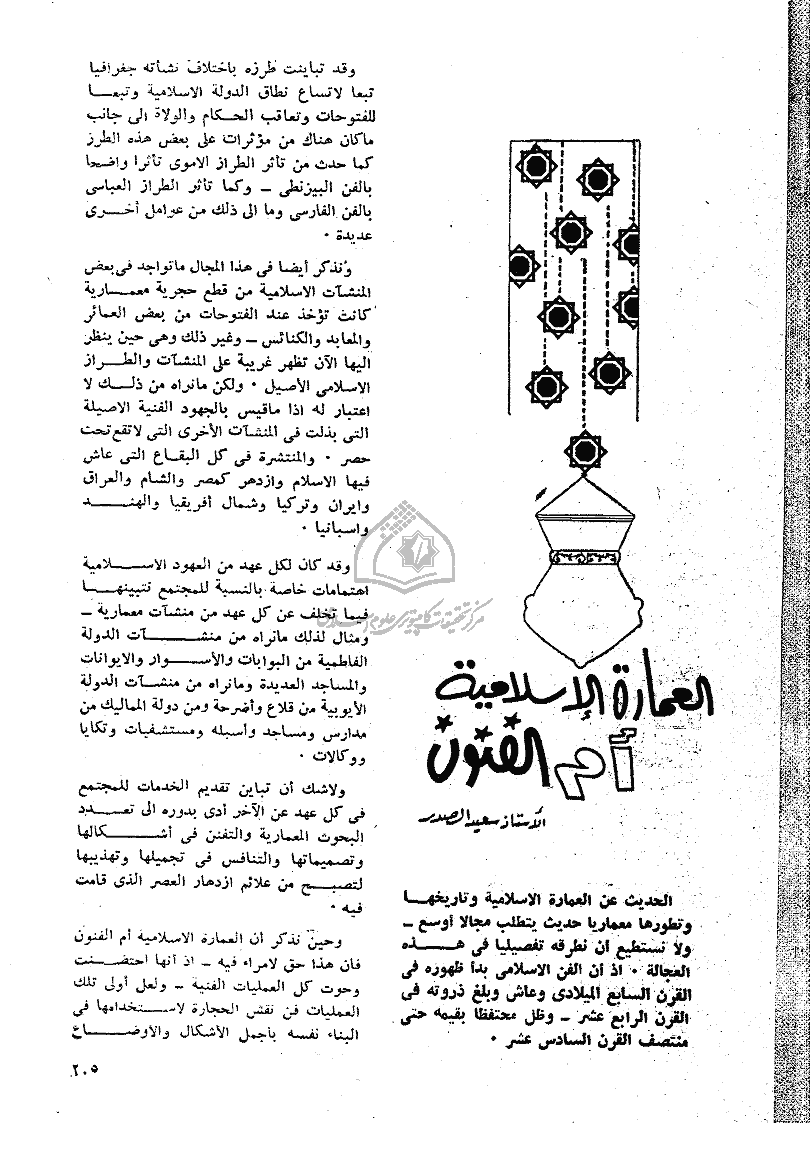 العمارة الإسلامية
أم الفنون
الأستاذ سعيد الصدر
الحديث عن العمارة الاسلامية وتاريخهـا
وتطورها معماريا حديث يتطلب مجالا أوسع ـ
ولا نستطيع ان نطرقه تفصيليا فى هـــذه
العجالة ٠ اذ أن الفن الاسلامى بدأ ظهوره فى
القرن السابع الميلادى وعاش وبلغ ذروته فى
القرن الرابع عشر ـ وظل محتفظا بقيمه حتى
منتصف القرن السادس عشر ٠
وقد تباينت طرزه باختلاف نشأته جغرافيا
تبعا لاتساع نطاق الدولة الاسلامية وتبعـــا
للفتوحات وتعاقب الحـكام والولاة الى جانب
ماكان هناك من مؤثرات على بعض هذه الطرز
كما حدث من تأثر الطراز الاموى تأثرا واضحا
بالفن البيزنطى ـ وكما تأثر الطراز العباسى
بالفن الفارسى وما الى ذلك من عوامل أخـرى
عديدة ٠
ونذكر أيضا فى هذا المجال ماتواجد فى بعض
المنشآت الاسلامية من قطع حجرية معمـــارية
كانت تؤخذ عند الفتوحات من بعض العمائر
والمعابد والكنائس ـ وغير ذلك وهى حين ينظر
اليها الآن تظهر غريبة على المنشآت والطـــراز
الاسلامى الأصيل ٠ ولكن مانراه من ذلـــك لا
اعتبار له اذا ماقيس بالجهود الفنية الاصيلة
التى بذلت فى المنشآت الأخرى التى لاتقع تحت
حصر ٠ والمنتشرة فى كل البقـاع التى عاش
فيها الاسلام وازدهر كمصر والشام والعراق
وايران وتركيا وشمال أفريقيا والهنـــد
واسبانيا ٠
وقد كان لكل عهد من العهود الاســـلامية
اهتمامات خاصة بالنسبة للمجتمع نتبينهـــا
فيما تخلف عن كل عهد من منشآت معمارية ـ
ومثال لذلك مانراه من منشـــــآت الدولة
الفاطمية من البوابات والأســـوار والايوانات
والمساجد العديدة ومانراه من منشـآت الدولة
الأيوبية من قلاع وأضرحة ومن دولة المماليك من
مدارس ومساجد وأسبله ومستشفيات وتكايا
ووكالات ٠
ولاشك أن تباين تقديم الخدمات للمجتمع
فى كل عهد عن الآخر أدى بدوره الى تعـــدد
البحوث المعمارية والتفنن فى أشـــكالها
وتصميماتها والتنافس فى تجميلها وتهذيبها
لتصبـــح من علائم ازدهار العصر الذى قامت
فيه ٠
وحين نذكر أن العمارة الاسلامية أم الفنون
فان هذا حق لامراء فيه ـ اذ أنها احتضـــنت
وحوت كل العمليات الفنية ـ ولعل أولى تلك
العمليات فن نقش الحجارة لاســـتخدامها فى
البناء نفسه بأجمل الأشكال والاوضـــاع
٢٠٥
مرکز تحقیقات کامپیوتری علوم اسلامی